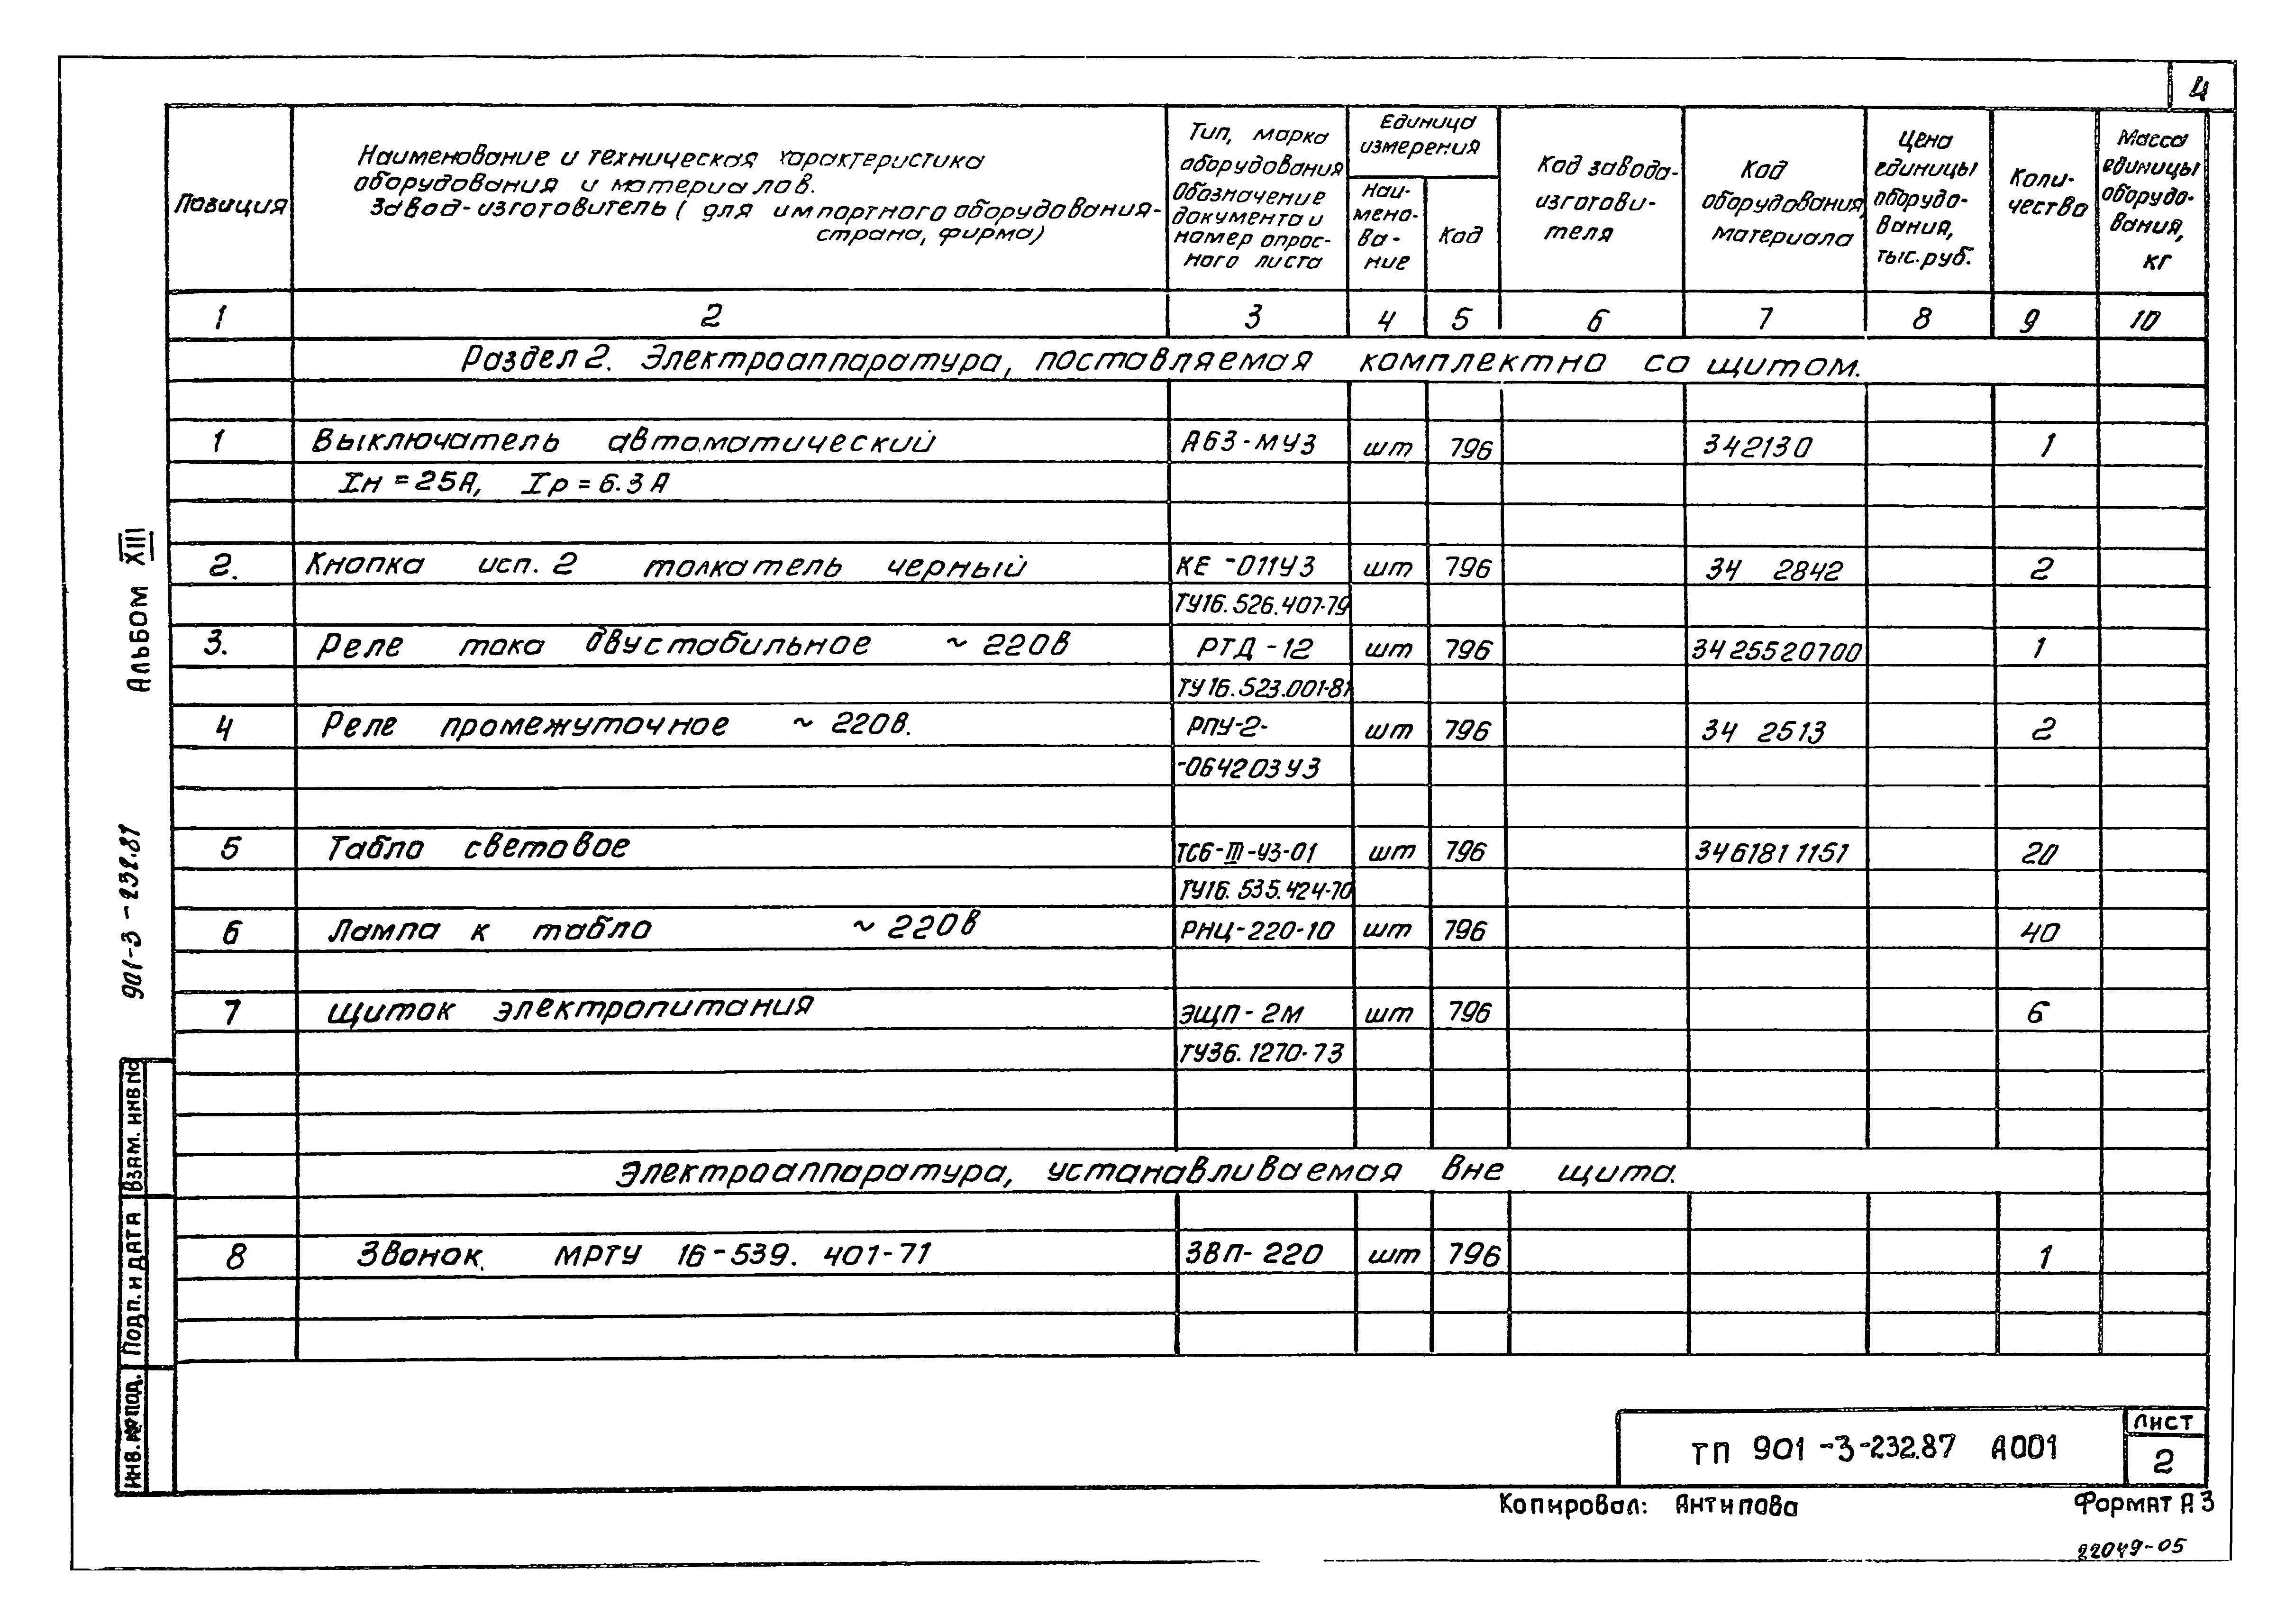 4
Позиция
Наименование и техническая характеристика
оборудования и материалов.
Завод-изготовитель (для импортного оборудования-
страна, фирма)
Тип, марка
оборудования
Обозначение
документа и
номер опрос-
ного листа
Единица
измерения
Наи-
мено-
ва-
ние
Код
Код завода-
изготови-
теля
Код
оборудования,
материала
Цена
единицы
оборудо-
вания,
тыс.руб.
Коли-
чество
Масса
единицы
оборудо-
вания,
кг
1 2 3 4 5 6 7 8 9 10
Раздел 2. Электроаппаратура, поставляемая комплектно со щитом.
1 Выключатель автоматический А63-МУ3 шт 796 342130 1
Iн = 25А, Iр = 6.3А
2. Кнопка исп. 2 толкатель черный КЕ-011У3 шт 796 34 2842 2
ТУ16.526.407-79
3. Реле тока двустабильное ~ 220в РТД-12 шт 796 3425520700 1
ТУ16.523.001-81
4 Реле промежуточное ~ 220в. РПУ-2- шт 796 34 2513 2
-064203У3
5 Табло световое ТСБ-III-У3-01 шт 796 3461811151 20
ТУ16.535.424-70
6 Лампа к табло ~ 220в РНЦ-220-10 шт 796 40
7 Щиток электропитания ЭЩП-2М шт 796 6
ТУ36.1270-73
Электроаппаратура, устанавливаемая вне щита.
8 Звонок. МРТУ 16-539. 401-71 ЗВП-220 шт 796 1
Альбом XIII
901-3-232.87
Взам. инв №
Подп. и дата
Инв. № подл.
ТП 901-3-232.87 А001
Лист
2
Копировал: Антипова
Формат А3
22049-05